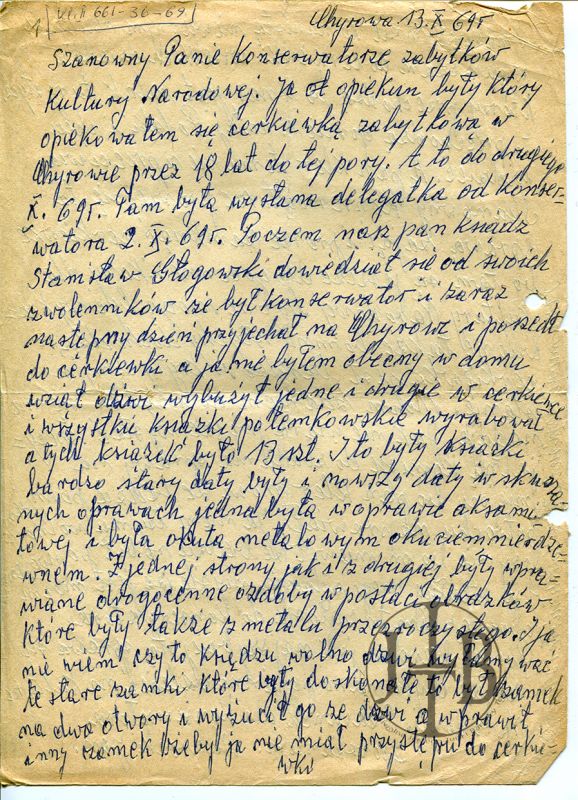 VI. A 661-36-69
1
Chyrowa 13.X 69r
Szanowny Panie Konserwatorze zabytków
Kultury Narodowej. Ja ot opiekun były który
opiekowałem się cerkiewką zabytkowa w
Chyrowie przez 18 lat do tej pory. A to do drugiego
X. 69r. Tam była wysłana delegatka od Konser-
watora 2. X. 69r. Poczem nasz pan ksiądz
Stanisław Głogowski dowiedział się od swoich
zwolenników że był konserwator i zaraz
następny dzień przyjechał na Chyrowe i poszedł
do cerkiewki a ja nie byłem obecny w domu
wziął dzwi wybużył jedne i drugie w cerkiewce
i wszystkie książki połemkowskie wyrabował
a tych książek było 13 szt. I to były książki
bardzo stary daty były i nowszy daty w skurza-
nych oprawach jedna była w oprawie aksami-
towej i była okuta metalowym okuciem mierdze-
wnem. Z jednej strony jak i z drugiej były wpra-
wiane drogocenne ozdoby w postaci obrazków
które były także z metalu przezroczystego. I ja
nie wiem czy to księdzu wolno dzwi wyłamywać
te stare zamki które były doskonałe to był zamek
na dwa otwory i wyżucił go ze dzwi a wprawił
inny zamek żeby ja nie miał przystępu do cerkie-
wki